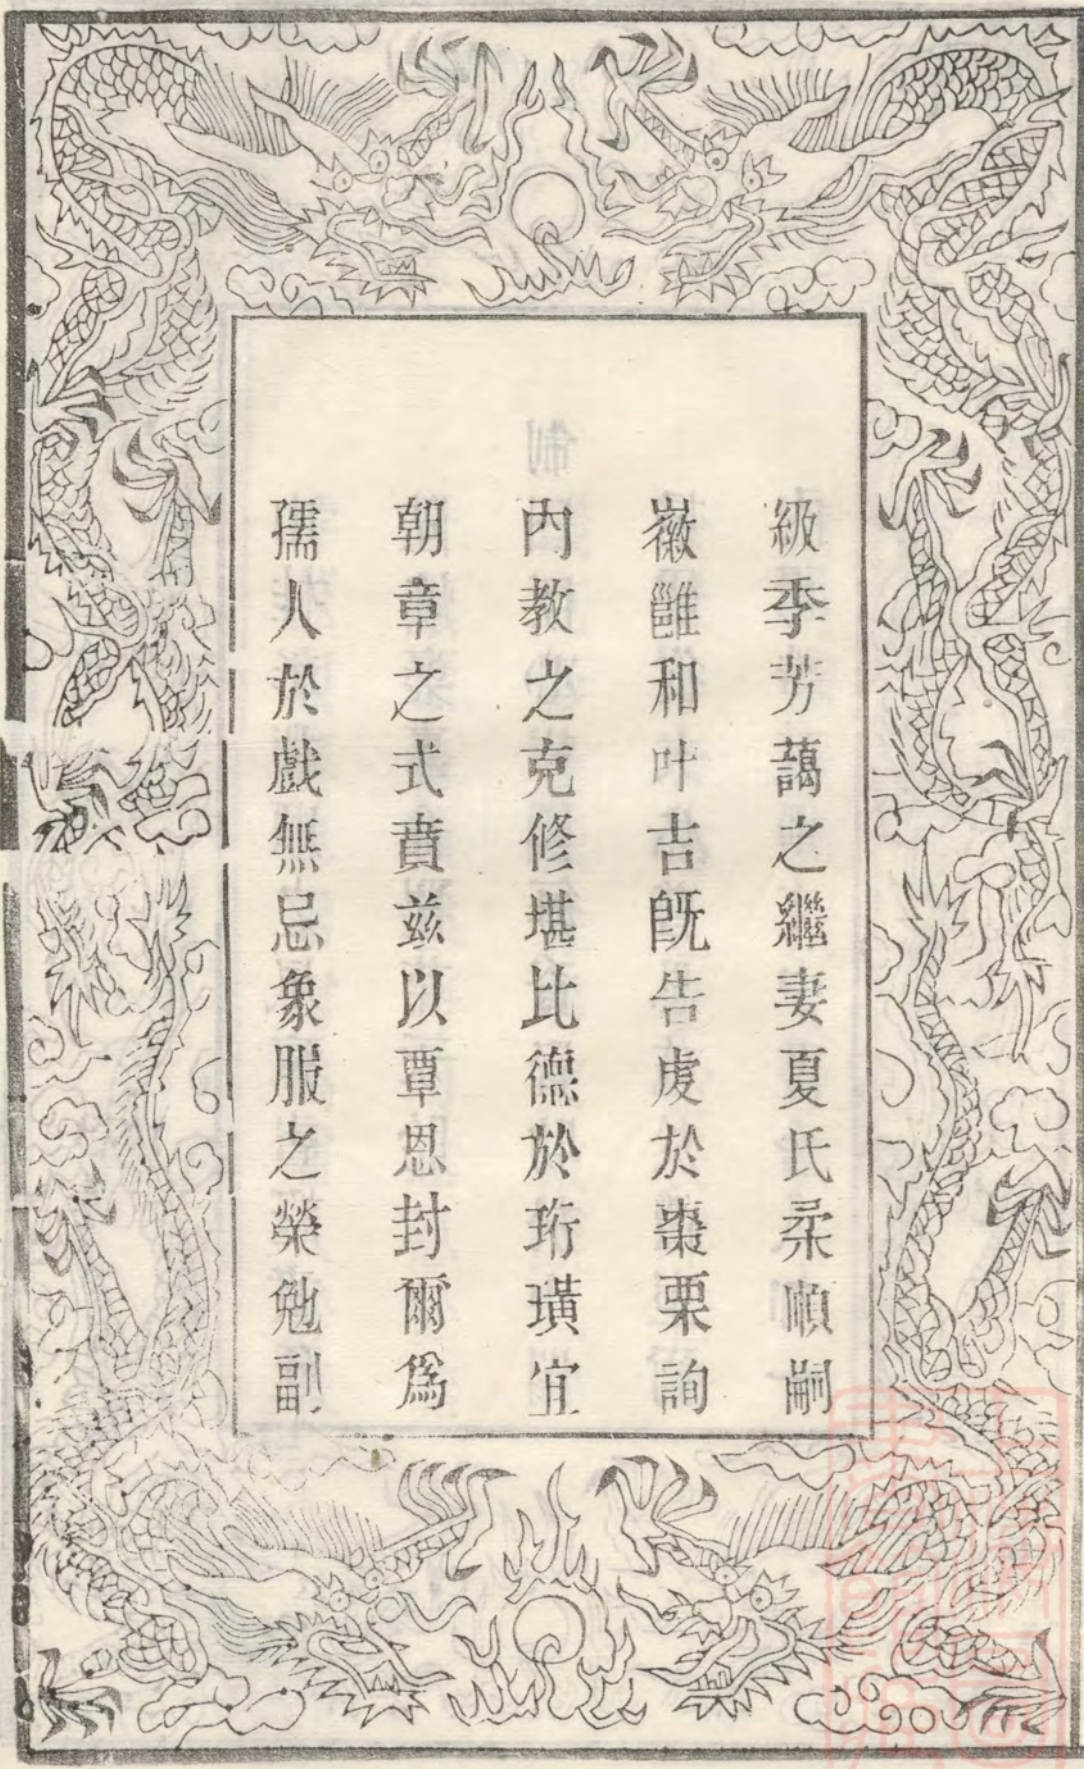 級季芳藹之繼妻夏氏柔順嗣
徽雝和叶吉旣告虔於棗栗詢
內教之克修堪比德於珩璜宜
朝章之式賁茲以覃恩封爾爲
孺人於戲無忌象服之榮勉副